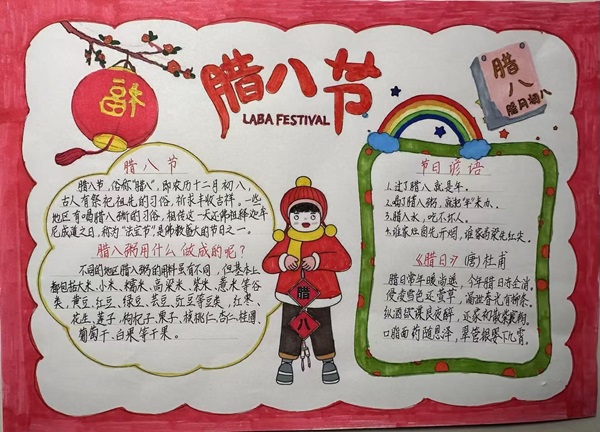 福
腊八节
LABA FESTIVAL
腊
八
腊月初八
腊八节
腊八节,俗称"腊八",即农历十二月初八,
古人有祭祀祖先的习俗,祈求丰收吉祥,一些
地区有喝腊八粥的习俗,相传这一天还佛祖释迦牟
尼成道之日,称为"法宝节"是佛教盛大的节日之一。
腊八粥用什么做成的呢?
不同的地区腊八粥的用料虽有不同,但基本上
都包括大米、小米、糯米、高粱米、紫米、薏米等谷
类,黄豆、红豆、绿豆、芸豆、豇豆等豆类,红枣、
花生、莲子、枸杞子、栗子、核桃仁、杏仁、桂圆、
葡萄干、白果等干果。
腊
八
节日谚语
1.过了腊八就是年。
2.喝了腊八粥,就把年来办。
3.腊八水,吃不坏人。
4.谁家灶囱先开烟,谁家高粱先红尖。
《腊日》(唐)杜甫
腊日常年暖尚遥,今年腊日冻全消。
侵凌雪色还萱草,漏泄春光有柳条。
纵酒欲谋良夜醉,还家初散紫宸朝。
口脂面药随恩泽,翠管银罂下九霄。